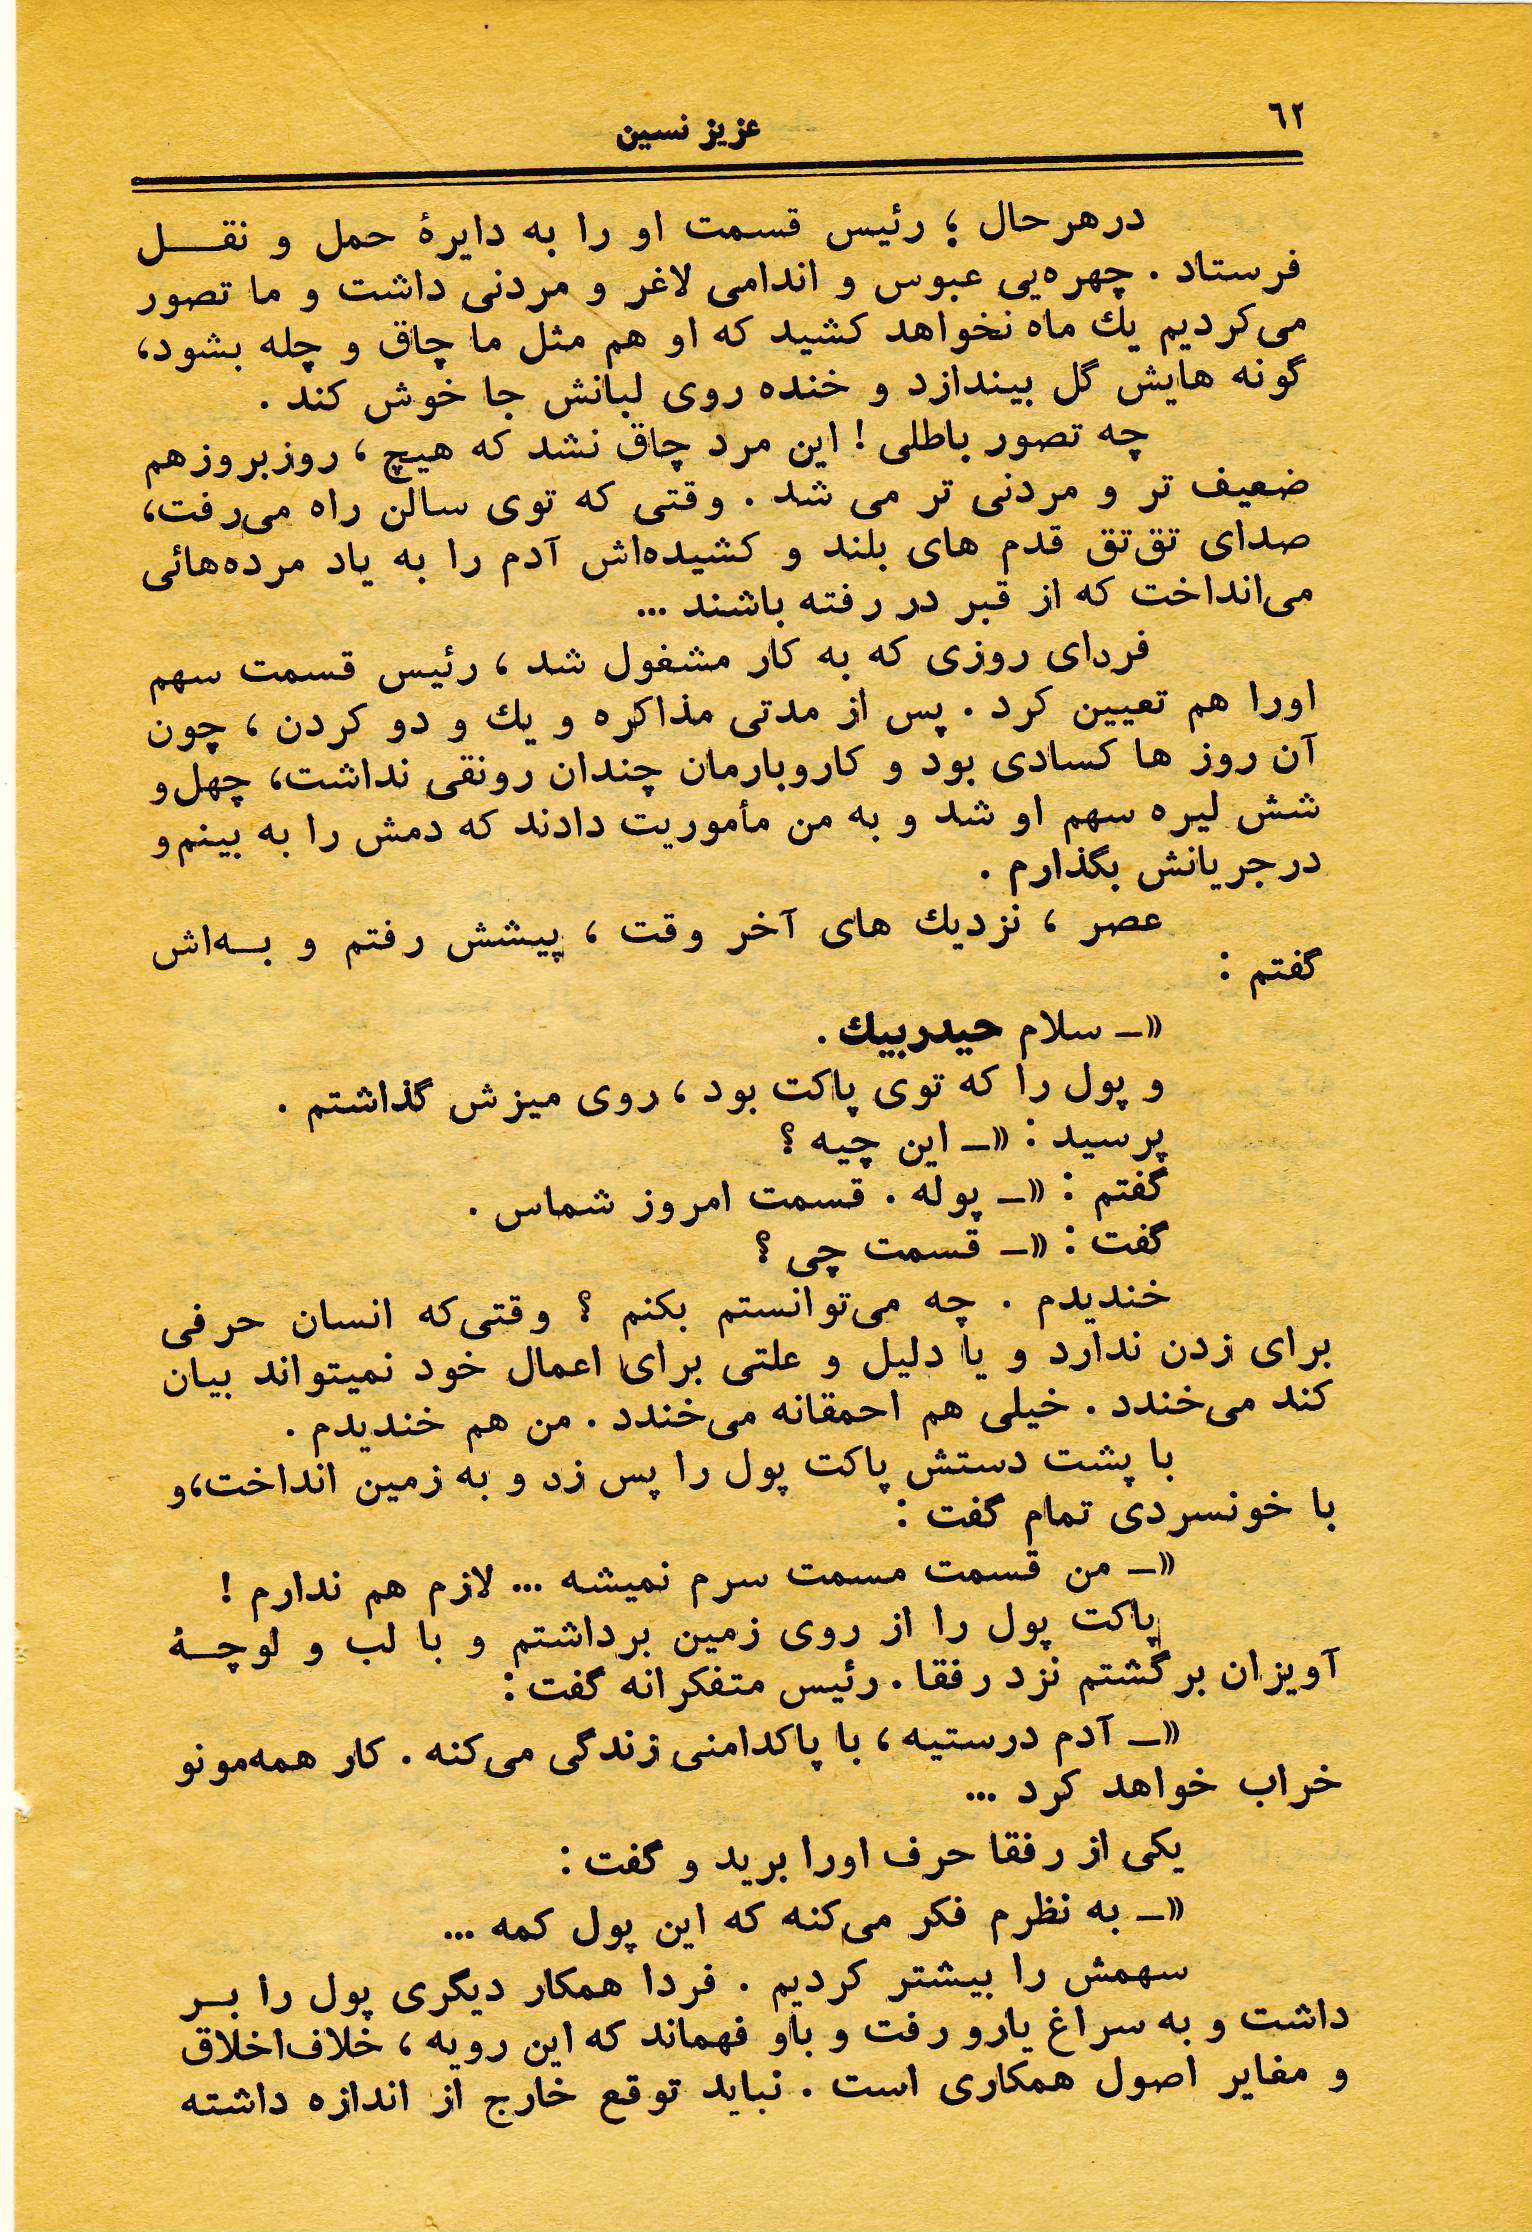 ٦٢
عزیز نسین
درهرحال ؛ رئیس قسمت او را به دایرهٔ حمل و نقـــل
فرستاد . چهره‌یی عبوس و اندامی لاغر و مردنی داشت و ما تصور
می‌کردیم یك ماه نخواهد کشید که او هم مثل ما چاق و چله بشود،
گونه هایش گل بیندازد و خنده روی لبانش جا خوش کند .
چه تصور باطلی ! این مرد چاق نشد که هیچ ، روزبروزهم
ضعیف تر و مردنی تر می شد . وقتی که توی سالن راه می‌رفت،
صدای تق‌تق قدم های بلند و کشیده‌اش آدم را به یاد مرده‌هائی
می‌انداخت که از قبر در رفته باشند ...
فردای روزی که به کار مشغول شد ، رئیس قسمت سهم
اورا هم تعیین کرد . پس از مدتی مذاکره و یك و دو کردن ، چون
آن روز ها کسادی بود و کاروبارمان چندان رونقی نداشت، چهل‌و
شش لیره سهم او شد و به من مأموریت دادند که دمش را به بینم‌و
درجریانش بگذارم .
عصر ، نزدیك های آخر وقت ، پیشش رفتم و بــه‌اش
گفتم :
«ــ سلام حیدربیك .
و پول را که توی پاکت بود ، روی میزش گذاشتم .
پرسید : «ــ این چیه ؟
گفتم : «ــ پوله . قسمت امروز شماس .
گفت : «ــ قسمت چی ؟
خندیدم . چه می‌توانستم بکنم ؟ وقتی‌که انسان حرفی
برای زدن ندارد و یا دلیل و علتی برای اعمال خود نمیتواند بیان
کند می‌خندد . خیلی هم احمقانه می‌خندد . من هم خندیدم .
با پشت دستش پاکت پول را پس زد و به زمین انداخت،و
با خونسردی تمام گفت :
«ــ من قسمت مسمت سرم نمیشه ... لازم هم ندارم !
پاکت پول را از روی زمین برداشتم و با لب و لوچــهٔ
آویزان برگشتم نزد رفقا . رئیس متفکرانه گفت :
«ــ آدم درستیه ، با پاکدامنی زندگی می‌کنه . کار همه‌مونو
خراب خواهد کرد ...
یکی از رفقا حرف اورا برید و گفت :
«ــ به نظرم فکر می‌کنه که این پول کمه ...
سهمش را بیشتر کردیم . فردا همکار دیگری پول را بــر
داشت و به سراغ یارو رفت و باو فهماند که این رویه ، خلاف‌اخلاق
و مغایر اصول همکاری است . نباید توقع خارج از اندازه داشته